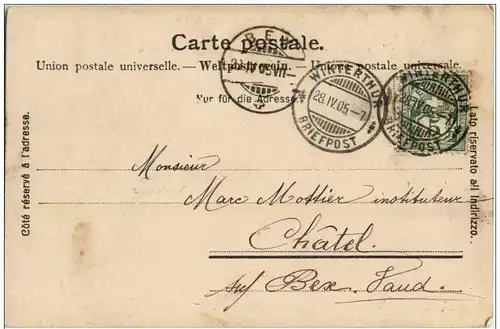 Carte postale.
Union postale universelle. — Weltpostverein. — Unione postale universale.
Nur für die Adresse.
BEX
28.IV.05.VII
WINTERTHUR
28.IV.05.-7
BRIEFPOST
WINTERTHUR
28.IV.05.
BRIEFPOST
Côté réservé à l'adresse.
Lato riservato all indirizzo.
Monsieur
Marc Mottier instituteur
Châtel.
sur Bex. Vaud.